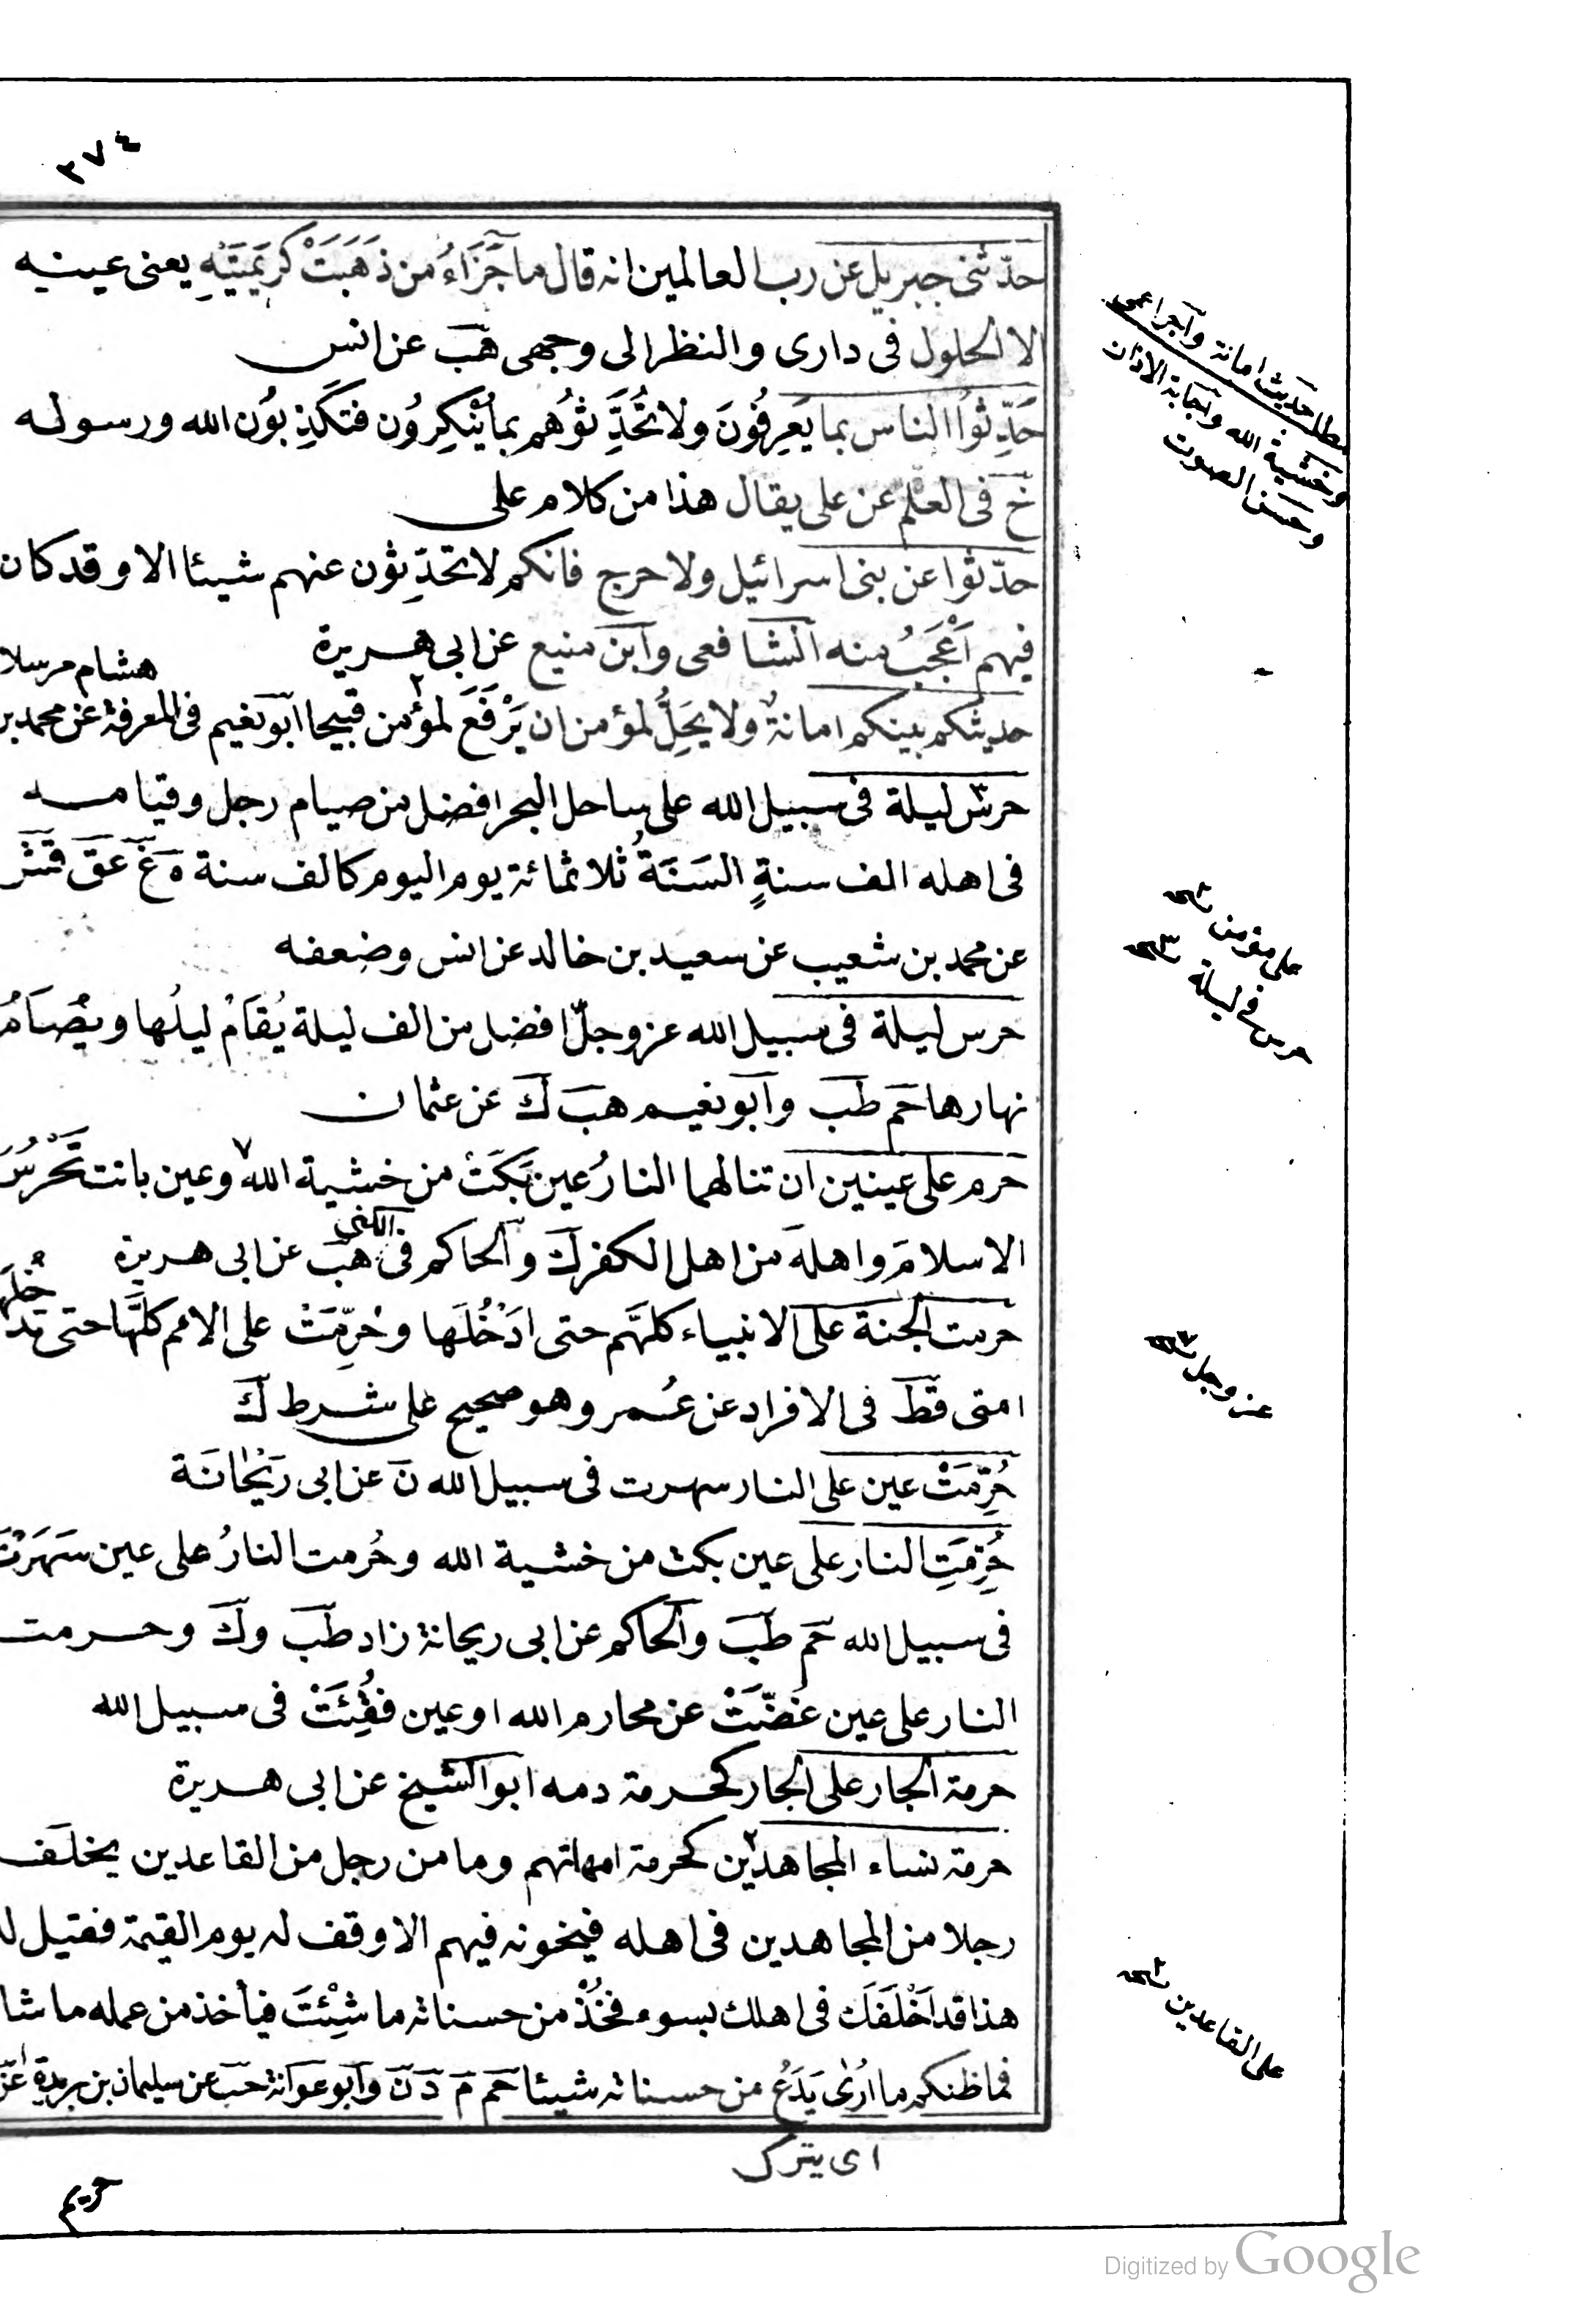 ٣٧٤
حدّثنى جبريل عن رب العالمين انه قال ما جَزَاءُ من ذَهَبَتْ كَرِيمَتَيْهِ يعنى عينيه
الا الحلول فى دارى والنظر الى وجهى هَب عن انس
حَدِّثُوُا الناس بما يَعرِفُونَ ولا تُحَدِّثُوُهم بما يُنْكِرُون فتكَذِبُون الله ورسوله
خ فى العلم عن على يقال هذا من كلام على
حدّثوا عن بنى اسرائيل ولا حرج فانكم لا تحَدِّثون عنهم شيئا الا وقد كان
فيهم اَعْجَبُ منه الشافعى وابن منيع عن ابى هريرة
هشام مرسلا
حديثكم بينكم امانةٌ ولا يَحِلُّ لمؤمن ان يَرْفَعَ لمؤمن قبيحا ابو نعيم فى المعرفة عن محمد بن
حرسُ ليلة فى سبيل الله على ساحل البحر افضل من صيام رجل وقيامه
فى اهله الف سنةٍ السَنَةُ ثلاثمائة يوم اليوم كالف سنة ه ع عق
عن محمد بن شعيب عن سعيد بن خالد عن انس وضعفه
حرس ليلة فى سبيل الله عز وجلّ افضل من الف ليلة يُقَامُ ليلُها ويُصَامُ
نهارها حَم طَب وابو نعيم هب ك عن عثمان
حرم على عينين ان تنالهما النارُ عين بَكَتْ من خشية الله ٧ وعين باتت تَحْرُسُ
الاسلامَ واهلَه من اهل الكفر ك والحاكم فى الكنى هب عن ابى هريرة
حرمت الجنة على الانبياء كلهَم حتى ادَخُلَها وحُرِّمَتْ على الامم كلِّها حتى تدخُلَها
امتى قط فى الافراد عن عُمر وهو صحيح على شرط ك
حُرِّمَتْ عين على النار سهرت فى سبيل الله ن عن ابى رَيْحَانَة
حُرِّمَتِ النار على عين بكت من خشية الله وحُرمت النارُ على عين سَهَرَتْ
فى سبيل الله حَم طَب والحاكم عن ابى ريحانة زاد طَب وك وحرمت
النار على عين غَضَّتْ عن محارم الله او عين فُقِئَتْ فى سبيل الله
حرمة الجار على الجار كحرمة دمه ابو الشيخ عن ابى هريرة
حرمة نساء المجاهدين ٢ كحرمة امهاتهم وما من رجل من القاعدين يخلَف
رجلا من المجاهدين فى اهله فيخونه فيهم الا وقف له يوم القيمة فقيل له
هذا قد اَخْلَفَك فى اهلك بسوء فخُذْ من حسناته ما شِئْتَ فيأخذ من عمله ما شا
فما ظنكم ما ارُى يَدَعُ من حسناته شيئا حَم م د ن وابو عوانة حب عن سليمان بن بريدة عن
اى يترك
حريم
مطلب حديث امانة واجر اعمى
وخشية الله واجابة الاذان
وحسن الصوت
على مؤمن
حرس فى ليلة
عز وجل
على القاعدين
Digitized by Google